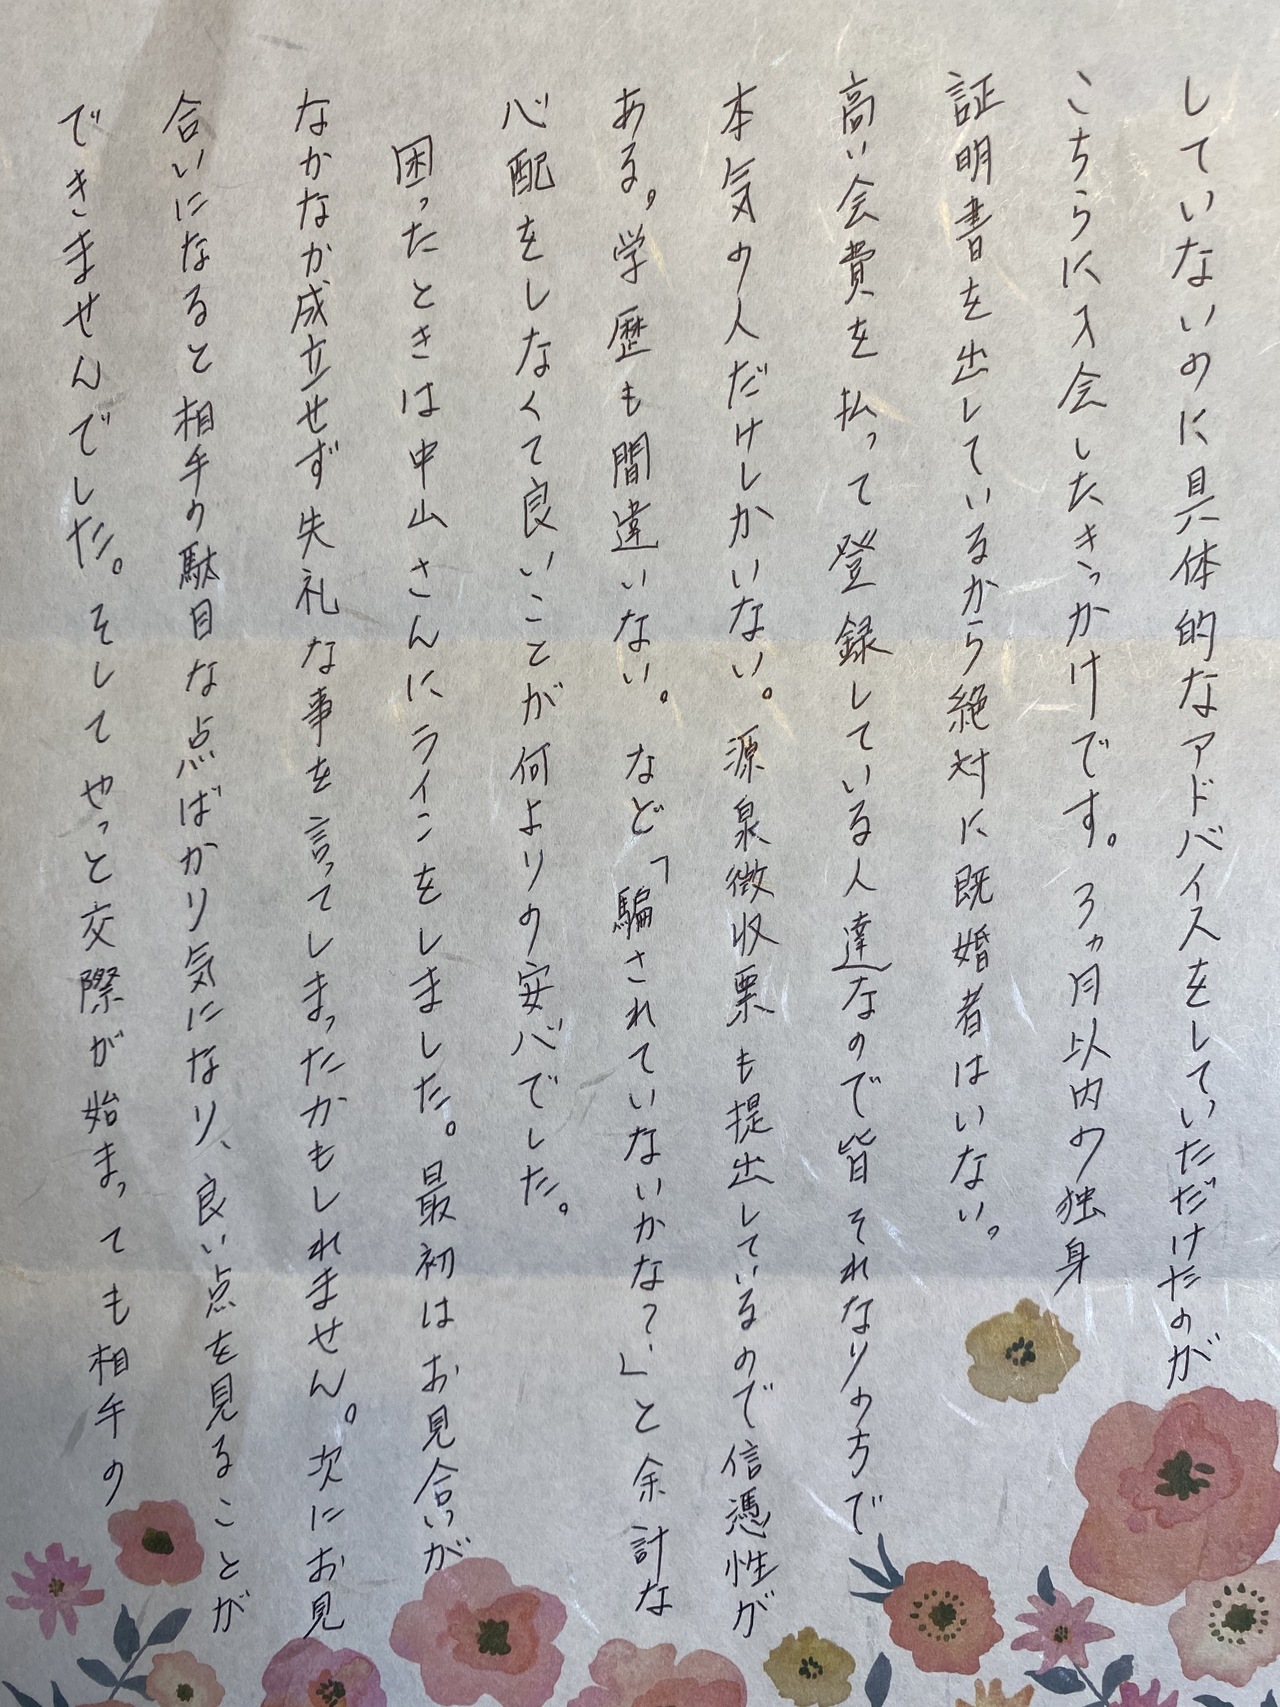 していないのに具体的なアドバイスをしていただけたのが
こちらに入会したきっかけです。3ヵ月以内の独身
証明書を出しているから絶対に既婚者はいない。
高い会費を払って登録している人達なので皆それなりの方で
本気の人だけしかいない。源泉徴収票も提出しているので信憑性が
ある。学歴も間違いない。など「騙されていないかな?」と余計な
心配をしなくて良いことが何よりの安心でした。
困ったときは中山さんにラインをしました。最初はお見合いが
なかなか成立せず失礼な事を言ってしまったかもしれません。次にお見
合いになると相手の駄目な点ばかり気になり、良い点を見ることが
できませんでした。そしてやっと交際が始まっても相手の